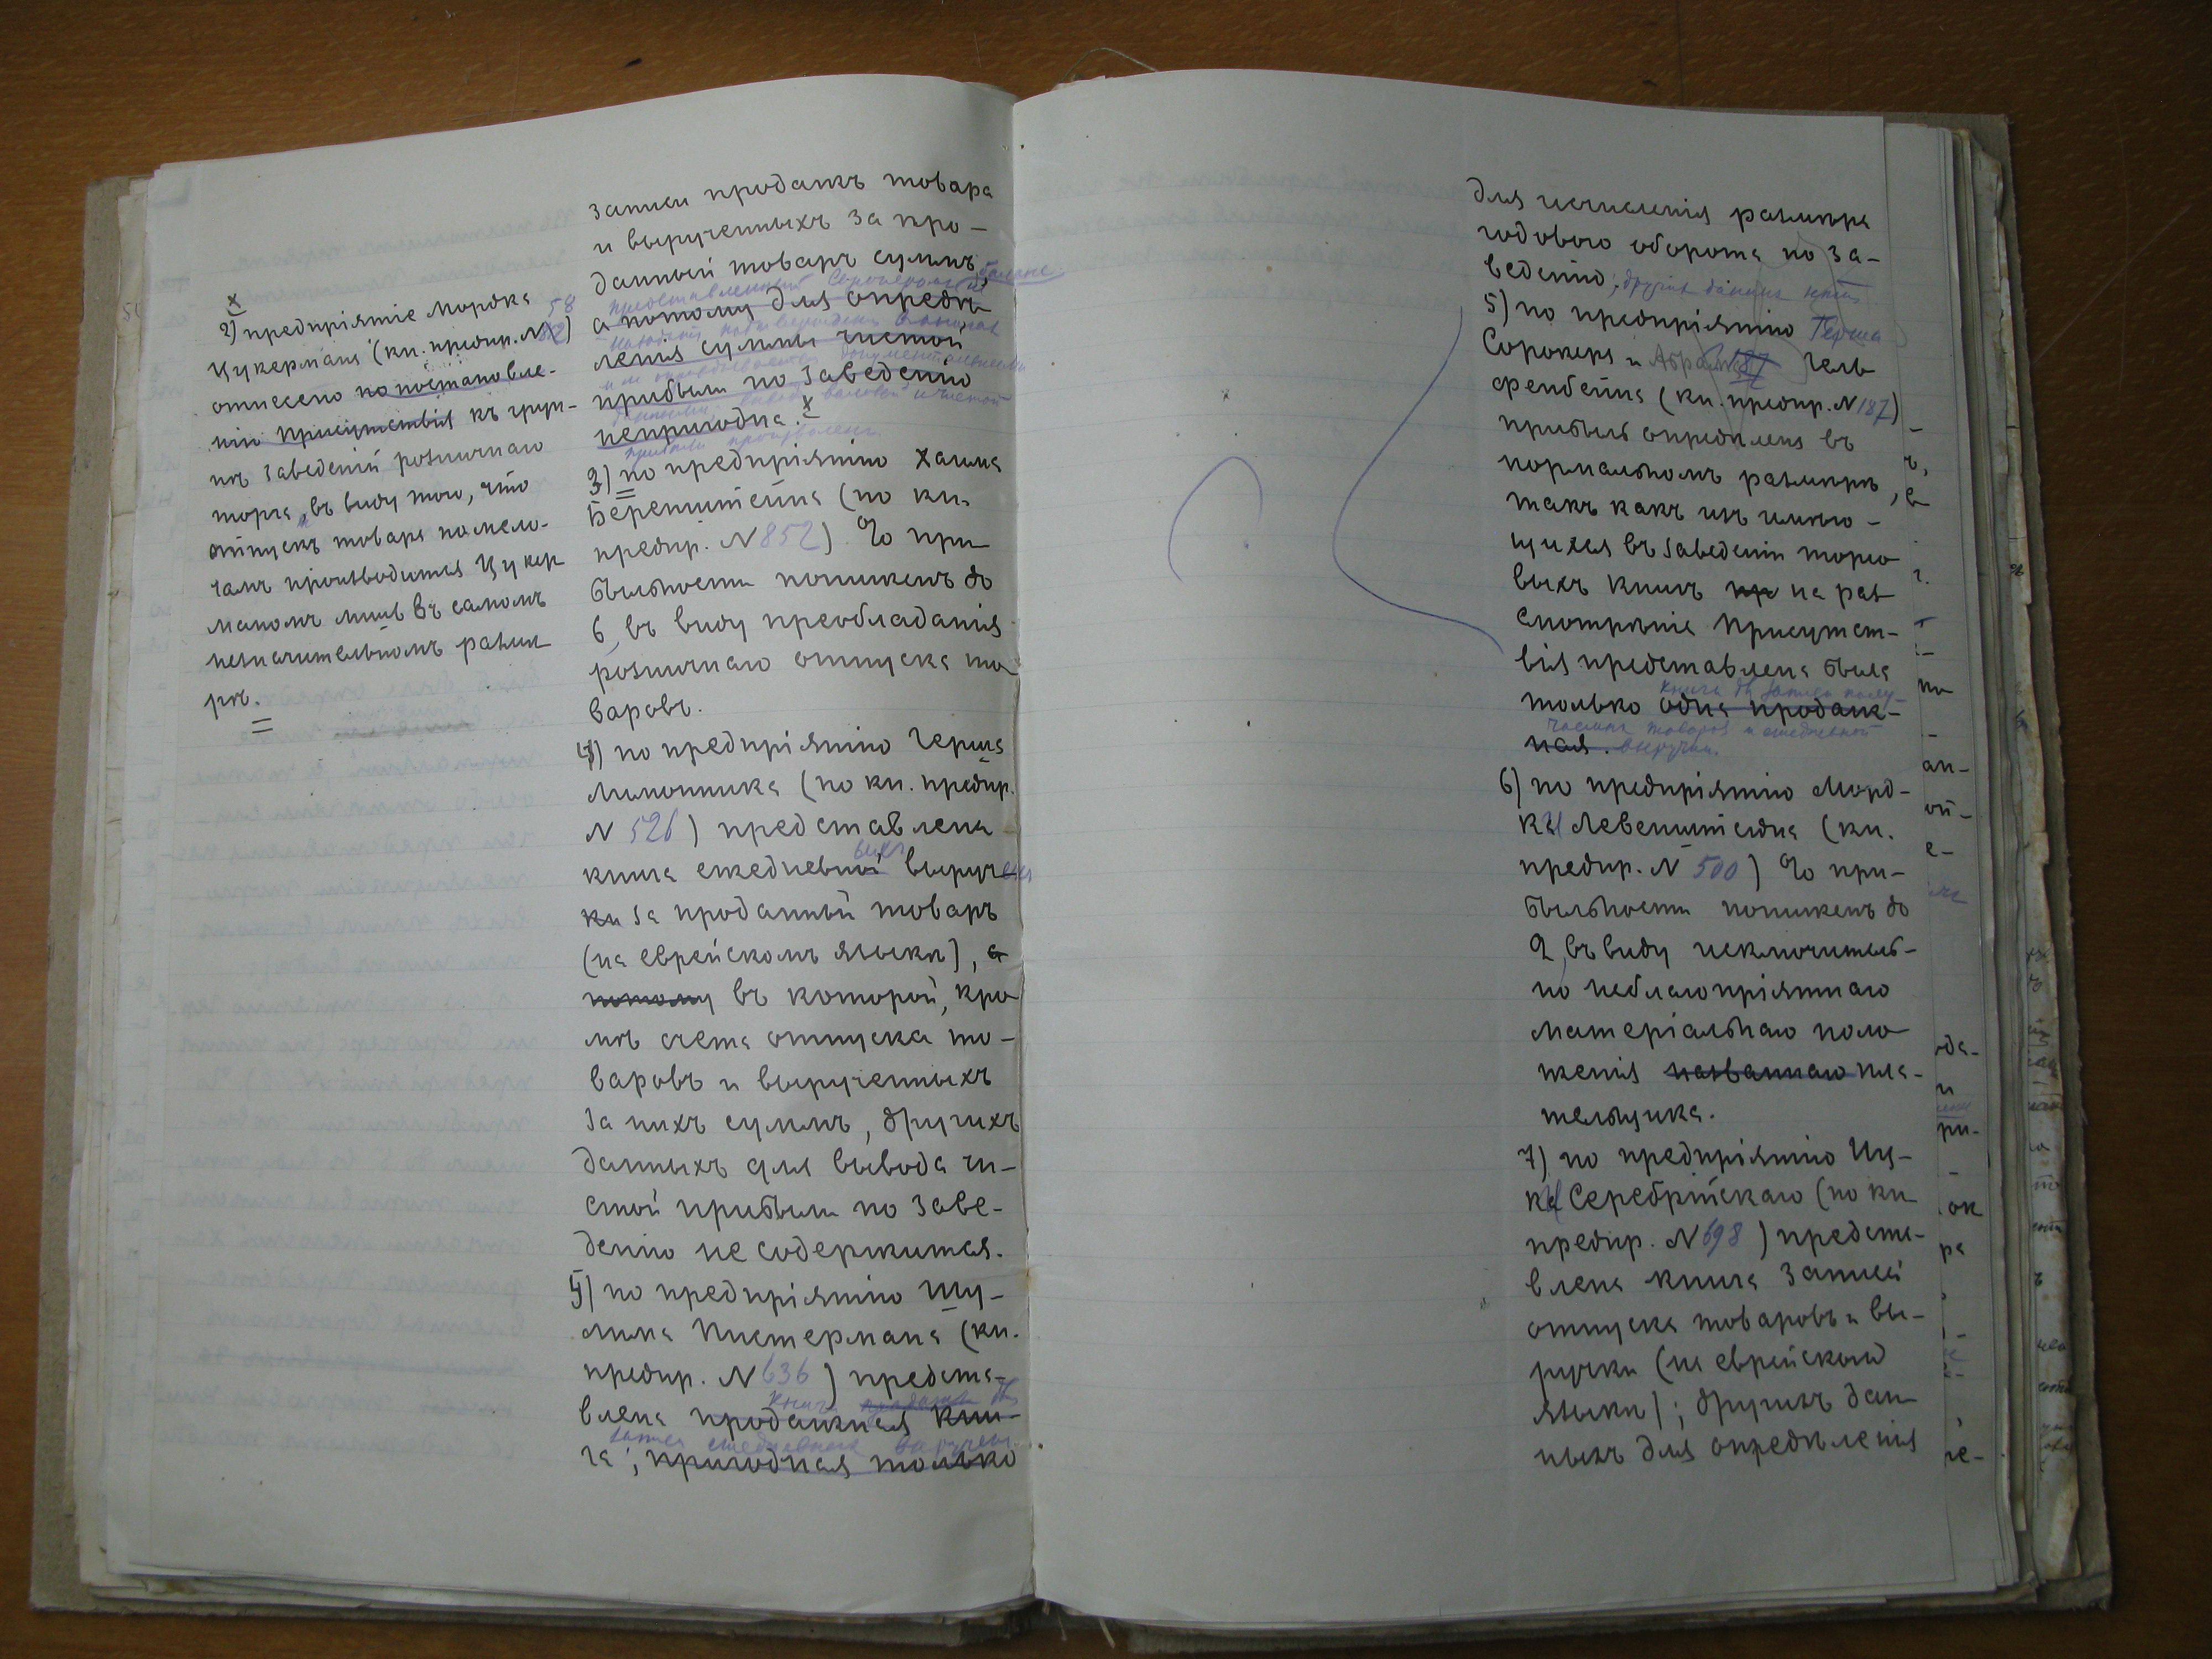 х
2) предпріятіе Мордка
Цукермана (кн. предпр. №
отнесено по постановле-
нію Присутствія къ груп-
пѣ заведеній розничнаго
торга, въ виду того, что
отпускъ товара по мело-
чамъ производится Цукер
маномъ лишь въ самомъ
незначительномъ разм
рѣ.
записи продажъ товара
и вырученныхъ за про-
данный товаръ суммъ,
а потому для опредѣ
ленія суммы чистой
прибыли по заведенію
непригодна. х
3) по предпріятію Хаима
Беренштейна (по кн.
предпр. № 852) % при
быльности пониженъ до
6, въ виду преобладанія
розничнаго отпуска то
варовъ.
4) по предпріятію Герша
Лимонника (по кн. предпр.
№ 526) представлена
книга ежедневной выруч
ки за проданный товаръ
(на еврейскомъ языкѣ), а
потому въ которой, кро
мѣ счета отпуска то-
варовъ и вырученныхъ
за нихъ суммъ, другихъ
данныхъ для вывода чи-
стой прибыли по заве-
денію не содержится.
5) по предпріятію Шу-
лима Пистермана (кн.
предпр. № 636) предста-
влена продажная кни-
га; пригодная только
для исчисленія размѣра
годового оборота по за-
веденію; другія данныя
5) по предпріятію Герша
Сорокера и Абрама Гель
фенбейна (кн. предпр. № 187)
прибыль опредѣлена въ
нормальномъ размѣрѣ,
такъ какъ изъ имѣю-
щихся въ заведеніи торго
выхъ книгъ на раз
смотрѣніе Присутст-
вія представлена была
книга для записи полу-
только одна продаж-
ченныхъ товаровъ и ежедневной
ная. выручки.
6) по предпріятію Морд-
ки Левенштейна (кн.
предпр. № 500) % при-
быльности пониженъ до
2, въ виду исключитель-
но неблагопріятнаго
матеріальнаго поло
женія названнаго пла-
тельщика.
7) по предпріятію Иц-
ки Серебрійскаго (по кн
предпр. № 698) предста-
влена книга записей
отпуска товаровъ и вы-
ручки (на еврейскомъ
языкѣ); другихъ дан
ныхъ для опредѣленія